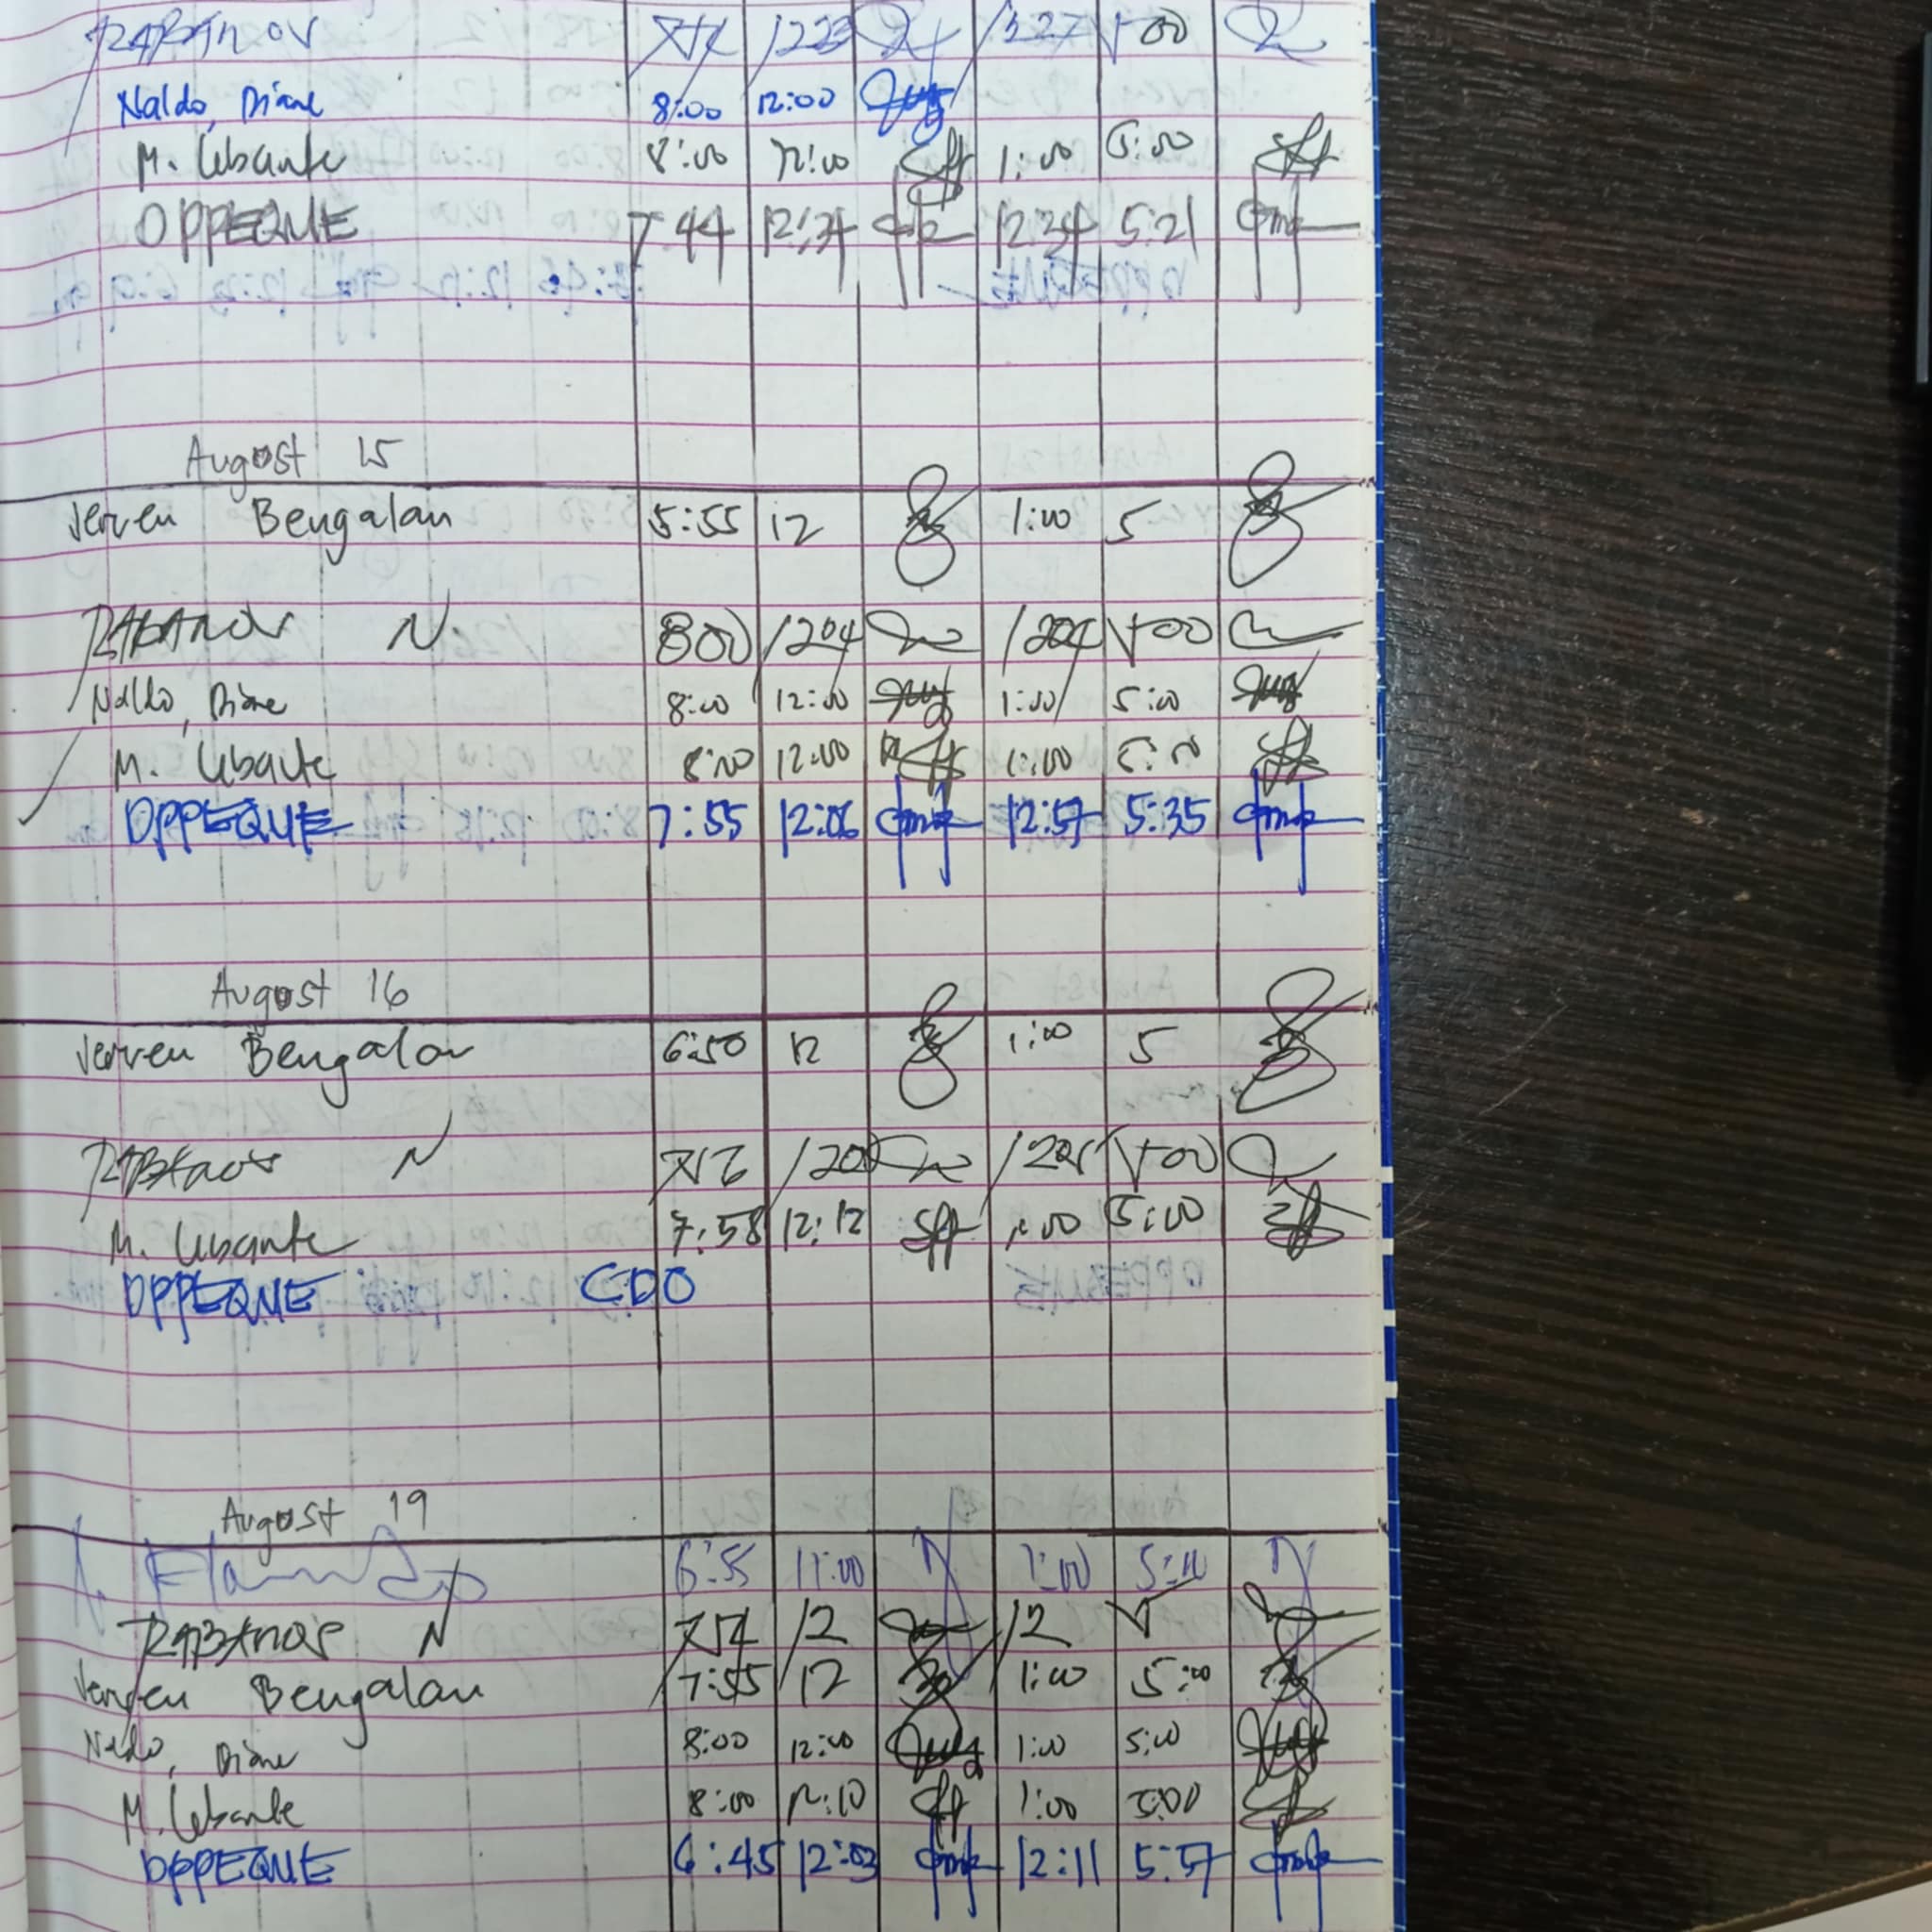 RABANOS 1223 1227 500
Naldo, Diane 8:00 12:00
M. Ubante 8:00 12:00 1:00 5:00
OPPEQUE 7 44 12:34 1234 5:21
August 15
Jerven Bengalan 5:55 12 1:00 5
RABANOS N. 800 1204 1204 500
Naldo, Diane 8:00 12:00 1:00 5:00
M. Ubante 8:00 12:00 1:00 5:00
OPPEQUE 7:55 12:06 12:57 5:35
August 16
Jerven Bengalan 6:50 12 1:00 5
RABANOS N 500
M. Ubante 7:58 12:12 1:00 5:00
OPPEQUE CDO
August 19
6:55 11:00 1:00 5:00
RABANOS N 754 12 12 5
Jerven Bengalan 7:55 12 1:00 5:00
Naldo, Diane 8:00 12:00 1:00 5:00
M. Ubante 8:00 12:10 1:00 5:00
OPPEQUE 6:45 12:03 12:11 5:57